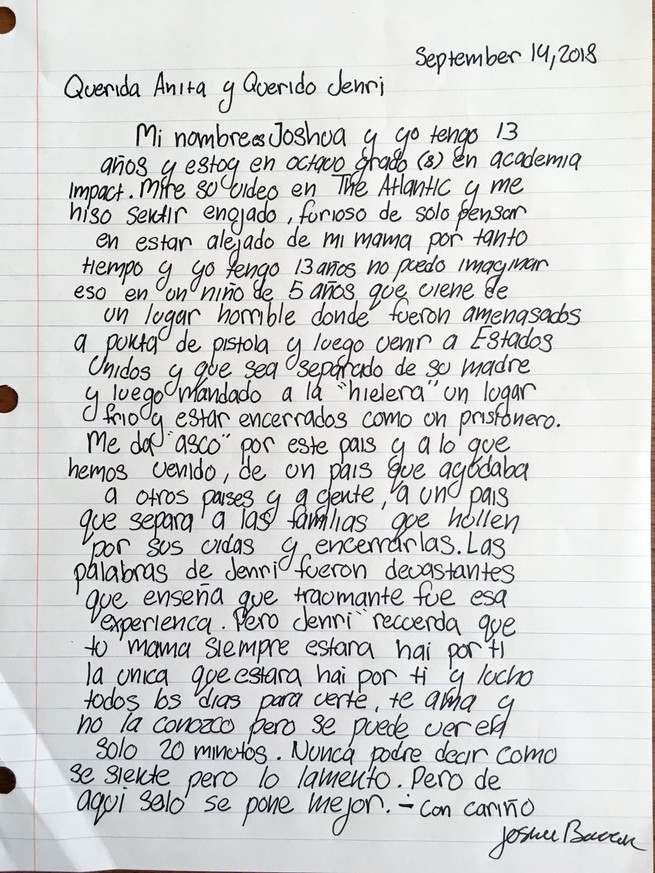 September 14, 2018
Querida Anita y Querido Jenri
Mi nombre es Joshua y yo tengo 13
años y estoy en octavo grado (8) en academia
Impact. Mire su video en The Atlantic y me
hiso sentir enojado, furioso de solo pensar
en estar alejado de mi mama por tanto
tiempo y yo tengo 13 años no puedo imaginar
eso en un niño de 5 años que viene de
un lugar horrible donde fueron amenasados
a punta de pistola y luego venir a Estados
Unidos y que sea separado de su madre
y luego mandado a la "hielera" un lugar
frio y estar encerrados como un prisionero.
Me da "asco" por este pais y a lo que
hemos venido, de un pais que ayudaba
a otros paises y a gente, a un pais
que separa a las familias que hullen
por sus vidas y encerrarlas. Las
palabras de Jenri fueron devastantes
que enseña que traumante fue esa
experienca. Pero Jenri recuerda que
tu mama siempre estara hai por ti
la unica que estara hai por ti y lucho
todos los dias para verte, te ama y
no la conozco pero se puede ver en
solo 20 minutos. Nunca podre decir como
se siente pero lo lamento. Pero de
aqui solo se pone mejor. - Con cariño